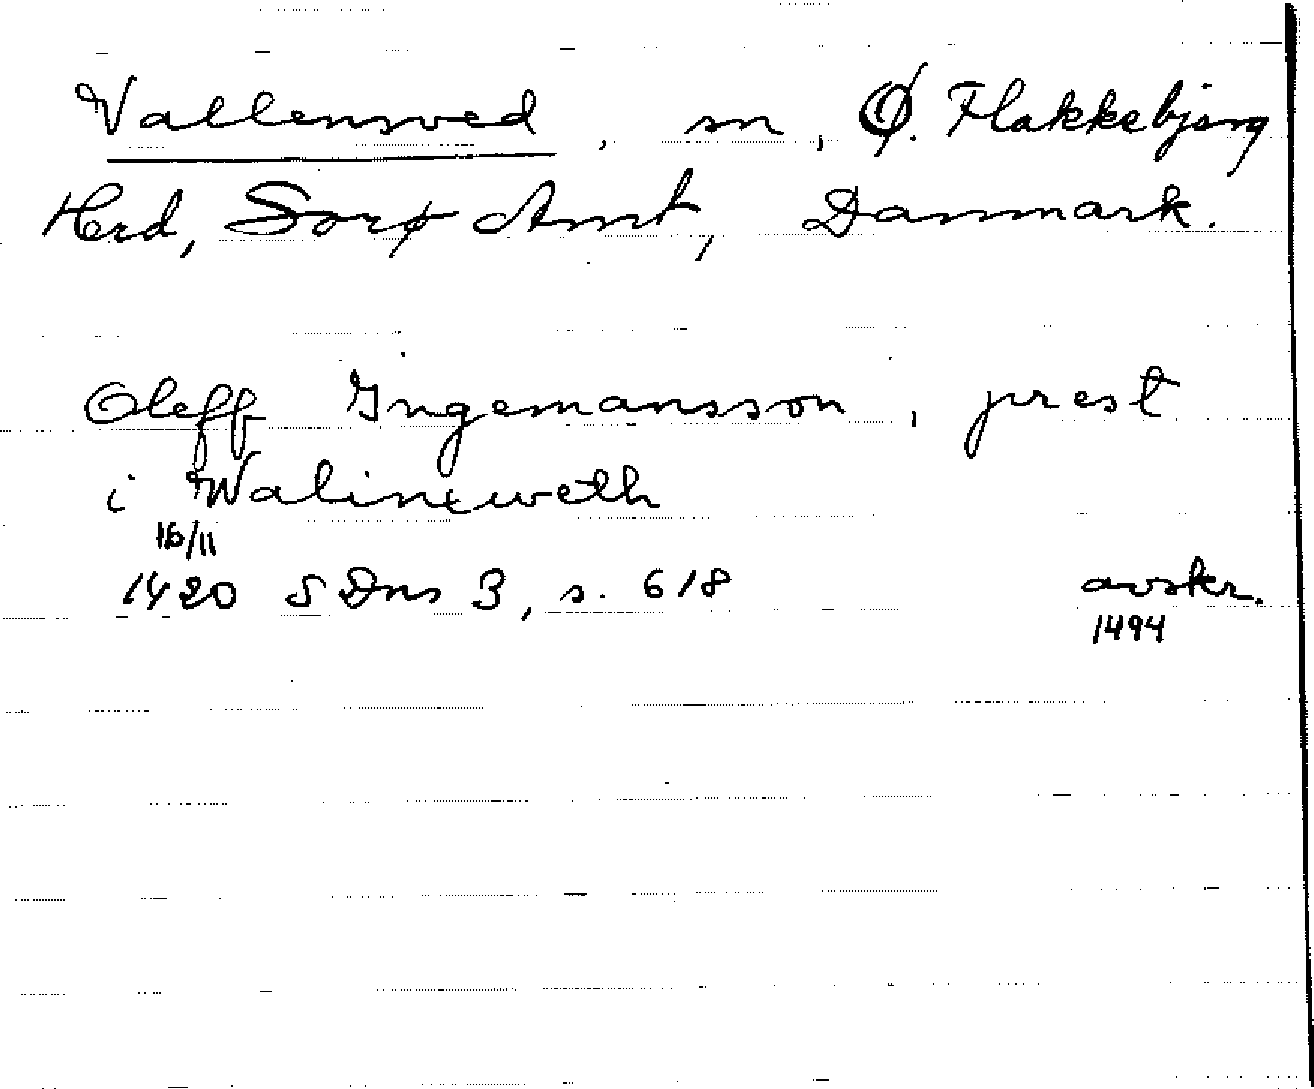 Vallensved, sn, Ø. Flakkebjerg
Hrd, Sorø Amt, Danmark.
Oleff Ingemansson, prest
i Walinxweth
16/11
1420 SDns 3, s. 618 avskr.
1494